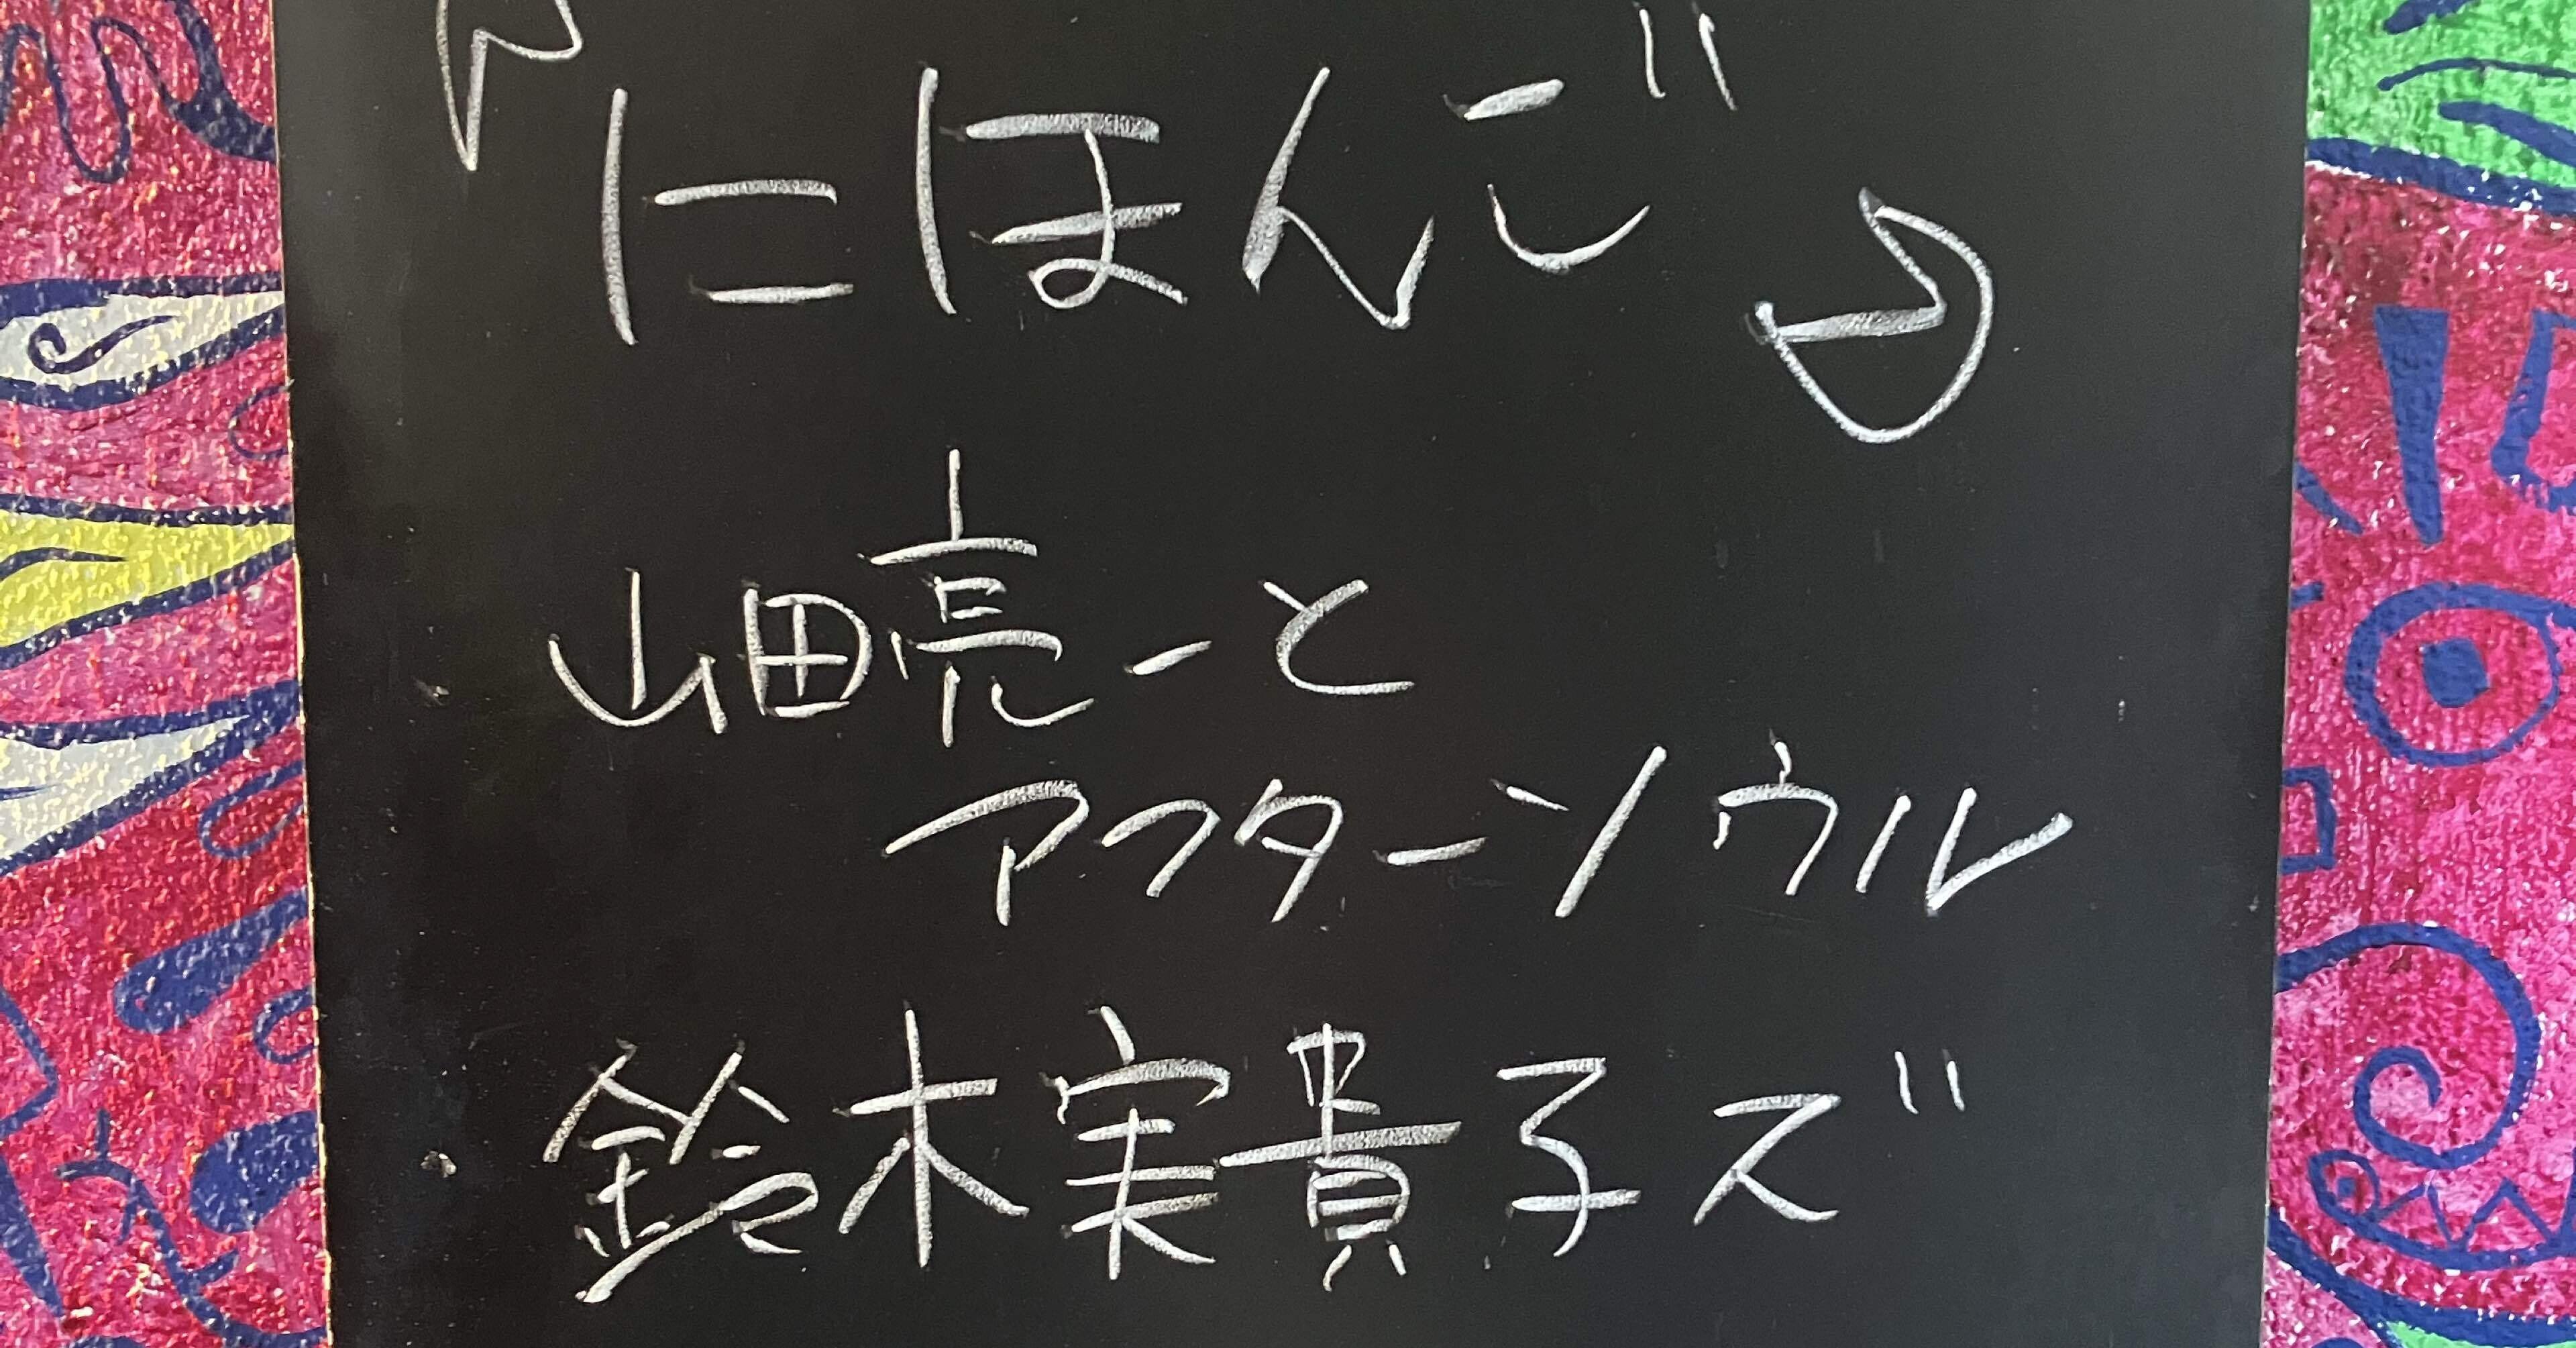 『にほんご』
山田亮一と
アフターソウル
・鈴木実貴子ズ